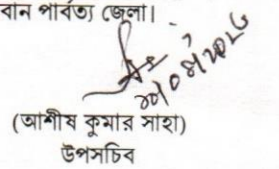 বান পার্বত্য জেলা।
(আশীষ কুমার সাহা)
উপসচিব